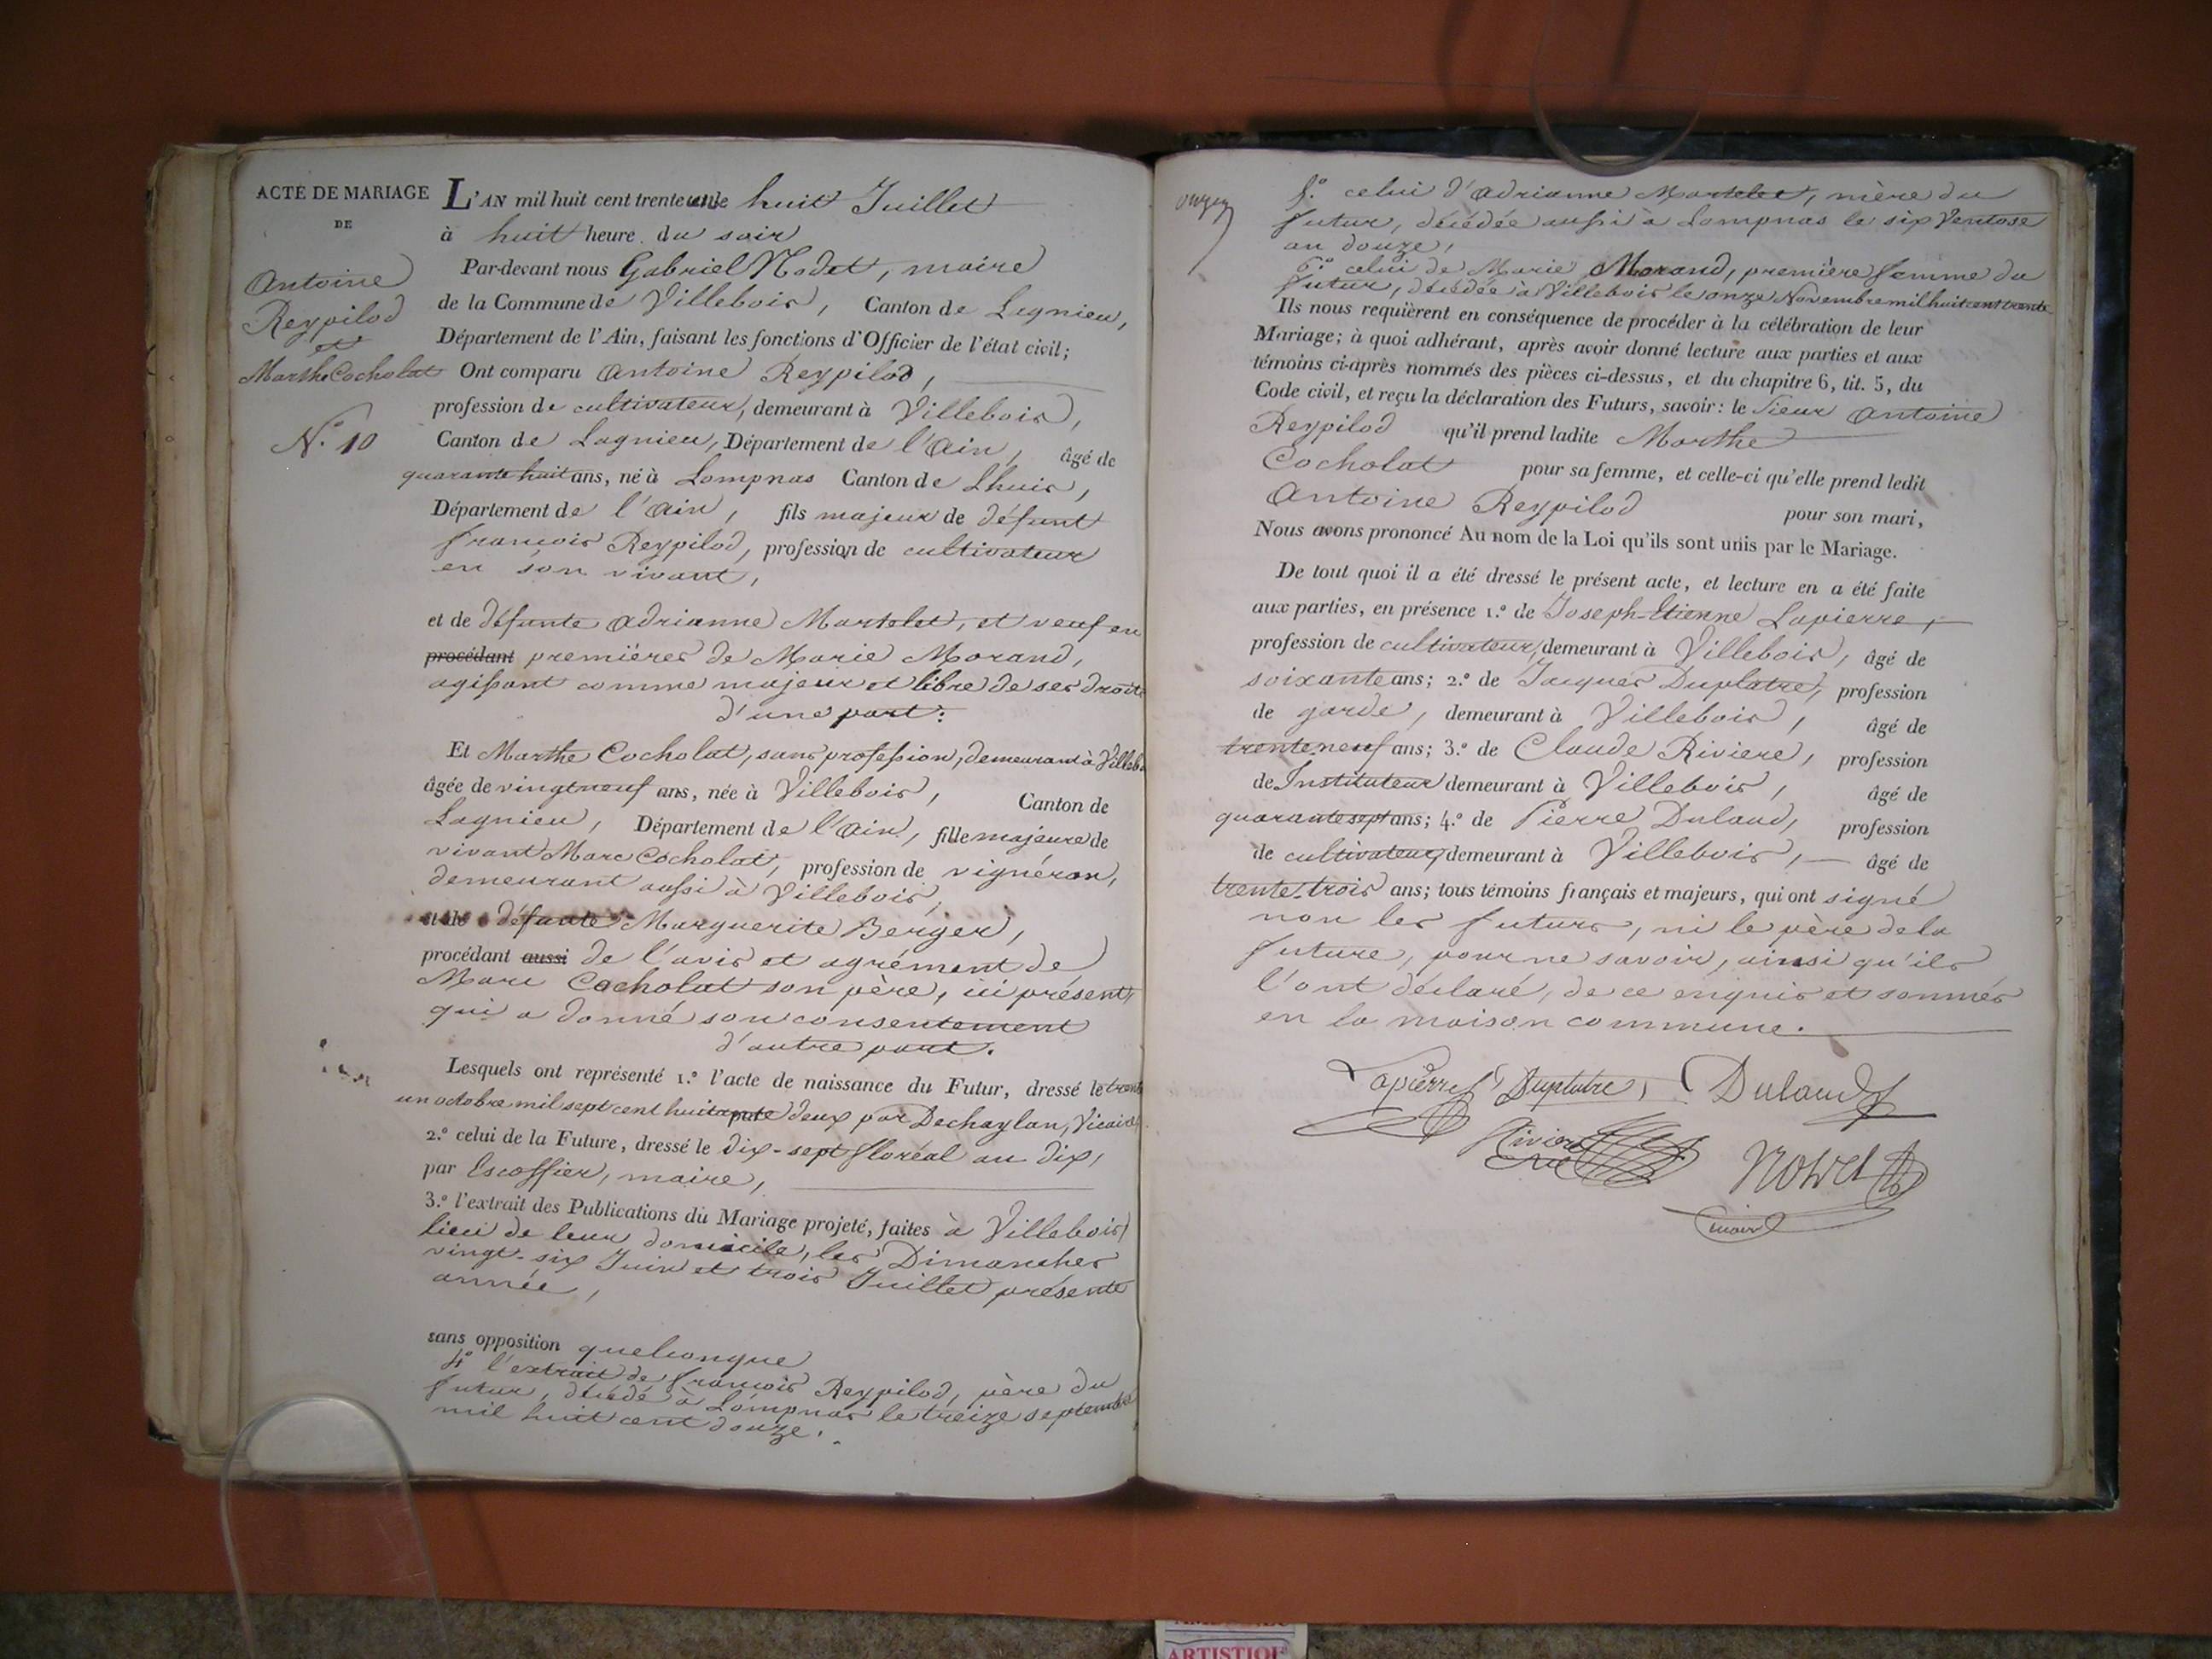 ACTE DE MARIAGE
DE
Antoine
Reypilod
et
Marthe Cocholat
N.° 10
L'AN mil huit cent trente un le huit Juillet
à huit heure du soir
Par-devant nous Gabriel Nodet, maire
de la Commune de Villebois, Canton de Lagnieu,
Département de l'Ain, faisant les fonctions d'Officier de l'état civil;
Ont comparu Antoine Reypilod,
profession de cultivateur, demeurant à Villebois,
Canton de Lagnieu, Département de l'Ain, âgé de
quarante huit ans, né à Lompnas Canton de Lhuis,
Département de l'Ain, fils majeur de défunt
françois Reypilod, profession de cultivateur
en son vivant,
et de défunte Adrianne Martelet, et veuf en
procédant premières de Marie Morand,
agissant comme majeur et libre de ses droits
d'une part.
Et Marthe Cocholat, sans profession, demeurant à Villeb
âgée de vingt neuf ans, née à Villebois, Canton de
Lagnieu, Département de l'Ain, fille majeure de
vivant Marc Cocholat, profession de vignéron,
demeurant aussi à Villebois,
et de défunte Marguerite Berger,
procédant aussi de l'avis et agrément de
Marc Cocholat son père, ici présent,
qui a donné son consentement
d'autre part.
Lesquels ont représenté 1.° l'acte de naissance du Futur, dressé le trente
un octobre mil sept cent huitante deux par Dechaylan, Vicaire
2.° celui de la Future, dressé le dix-sept floréal an dix,
par Escoffier, maire,
3.° l'extrait des Publications du Mariage projeté, faites à Villebois
lieu de leur domicile, les Dimanches
vingt-six Juin et trois Juillet présente
année,
sans opposition quelconque
4° l'extrait de françois Reypilod, père du
futur, décédé à Lompnas le treize septembre
mil huit cent douze.
5.° celui d'Adrianne Martelet, mère du
futur, décédée aussi à Lompnas le six Ventose
an douze,
6.° celui de Marie Morand, première femme du
futur, décédée à Villebois le onze Novembre mil huit cent trente
Ils nous requièrent en conséquence de procéder à la célébration de leur
Mariage; à quoi adhérant, après avoir donné lecture aux parties et aux
témoins ci-après nommés des pièces ci-dessus, et du chapitre 6, tit. 5, du
Code civil, et reçu la déclaration des Futurs, savoir: le Sieur Antoine
Reypilod qu'il prend ladite Marthe
Cocholat pour sa femme, et celle-ci qu'elle prend ledit
Antoine Reypilod pour son mari,
Nous avons prononcé Au nom de la Loi qu'ils sont unis par le Mariage.
De tout quoi il a été dressé le présent acte, et lecture en a été faite
aux parties, en présence 1.° de Joseph-Etienne Lapierre,
profession de cultivateur, demeurant à Villebois, âgé de
soixante ans; 2.° de Jacques Duplatre, profession
de garde, demeurant à Villebois, âgé de
trente neuf ans; 3.° de Claude Riviere, profession
de Instituteur demeurant à Villebois, âgé de
quarante sept ans; 4.° de Pierre Dulaud, profession
de cultivateur, demeurant à Villebois, âgé de
trente-trois ans; tous témoins français et majeurs, qui ont signé
non les futurs, ni le père de la
future, pour ne savoir, ainsi qu'ils
l'ont déclaré, de ce enquis et sommés
en la maison commune.
Lapierre Duplatre Dulaud
Riviere Nodet
maire
ARTISTIQUE